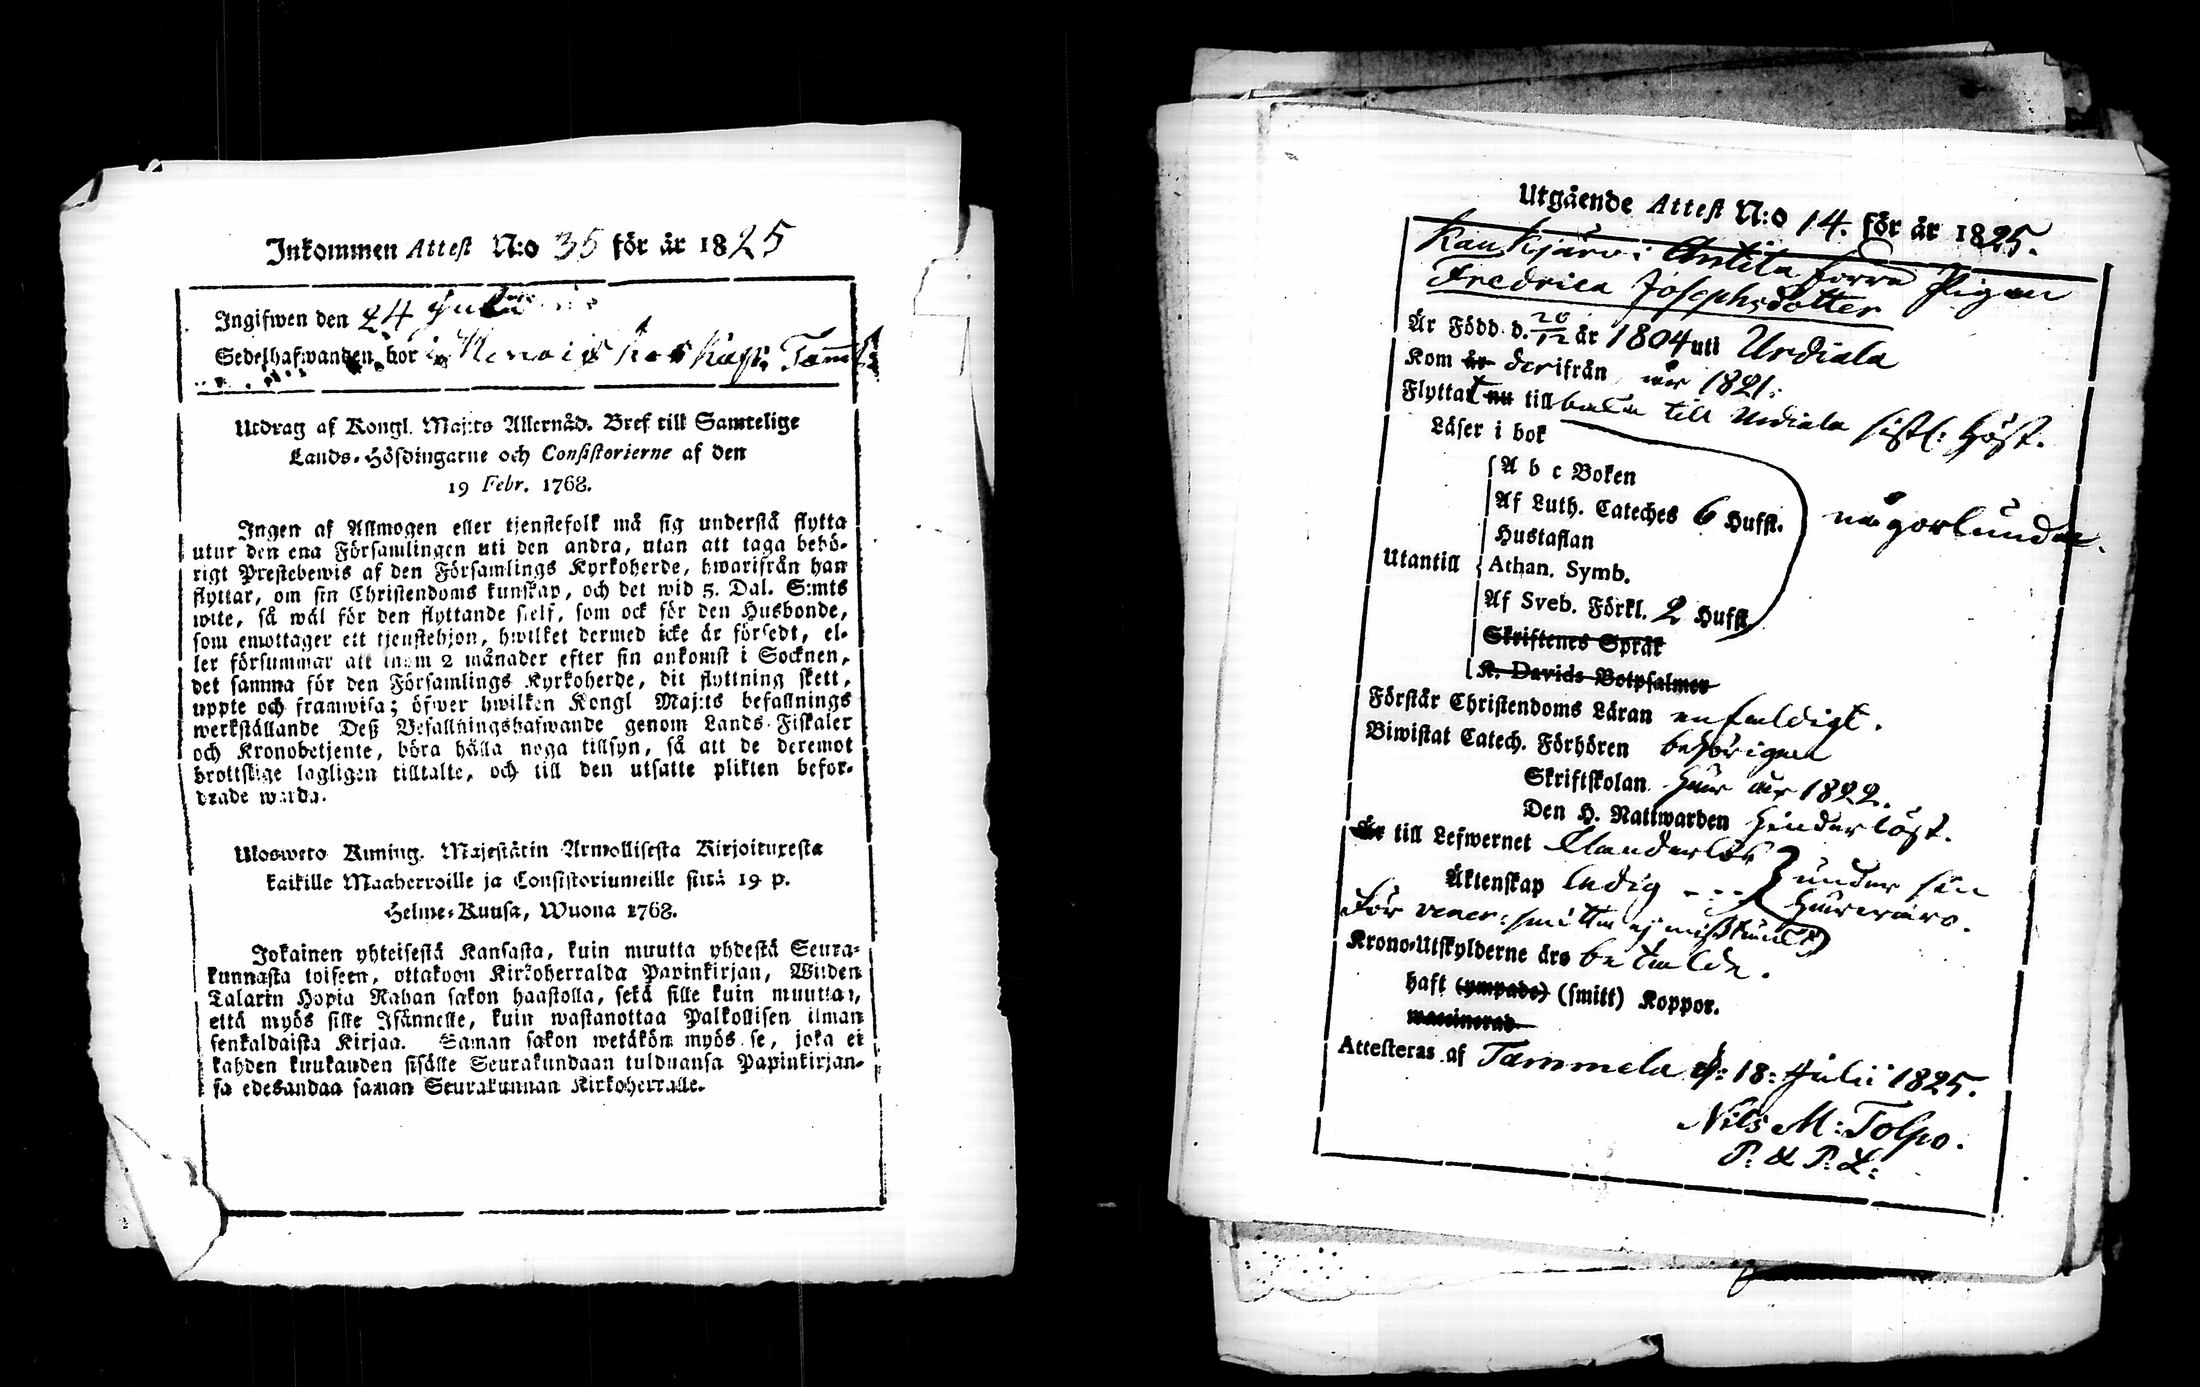 Inkommen Attest N:o 35 för år 1825
Ingifwen den 24 Julii
Sedelhafwanden bor i
Utdrag af Kongl. Maj:ts Allernåd. Bref till Samtelige
Lands-Höfdingarne och Consistorierne af den
19 Febr. 1768.
Ingen af Allmogen eller tjenstefolk må sig understå flytta
utur den ena Församlingen uti den andra, utan att taga behö-
rigt Prestebewis af den Församlings Kyrkoherde, hwarifrån han
flyttar, om sin Christendoms kunskap, och det wid 5. Dal. S:mts
wite, så wäl för den flyttande sielf, som ock för den Husbonde,
som emottager ett tjenstehjon, hwilket dermed icke är försedt, el-
ler försummar att inom 2 månader efter sin ankomst i Socknen,
det samma för den Församlings Kyrkoherde, dit flyttning skett,
uppte och framwisa; öfwer hwilken Kongl Maj:ts befallnings
werkställande Deß Befallningshafwande genom Lands-Fiskaler
och Kronobetjente, böra hålla noga tillsyn, så att de deremot
brottslige lagligen tilltalte, och till den utsatte plikten befor-
drade warda.
Ulosweto Kuning. Majestätin Armollisesta Kirjoituxesta
kaikille Maaherroille ja Consistoriumeille siitä 19 p.
Helme-Kuusa, Wuona 1768.
Jokainen yhteisestä Kansasta, kuin muutta yhdestä Seura-
kunnasta toiseen, ottakoon Kirkoherralda Papinkirjan, Wiiden
Talarin Hopia Rahan sakon haastolla, sekä sille kuin muuttaa,
että myös sille Isännelle, kuin wastanottaa Palkollisen ilman
senkaldaista Kirjaa. Saman sakon wetäkön myös se, joka ei
kahden kuukauden sisälle Seurakundaan tulduansa Papinkirjan-
sa edesandaa saman Seurakunnan Kirkoherralle.
Utgående Attest N:o 14. för år 1825.
Kaukjärvi Anttila förra Pigan
Fredrica Josephsdotter
Är Född d. 20/12 år 1804 uti Urdiala
Kom år derifrån år 1821:
Flyttat nu till baka till Urdiala sistl: Höst.
Läser i bok
A b c Boken
Af Luth. Cateches 6 Hufst. någorlunda.
Hustaflan
Utantill Athan. Symb.
Af Sveb. Förkl. 2 Hufst.
Skriftenes Språk
K. Davids Botpsalmer
Förstår Christendoms Läran enfaldigt.
Biwistat Catech. Förhören behörigen
Skriftskolan här år 1822.
Den H. Nattwarden Hinderlöst.
Är till Lefwernet Klanderlös
Äktenskap ledig --- under sin härvaro.
För vener: smitta ej misstänkt
Krono-Utskylderne äro betalde.
haft (ympade) (smitt) Koppor.
waccinerad
Attesteras af Tammela d: 18: Julii 1825.
Nils M: Tolpo.
P: & P: L: